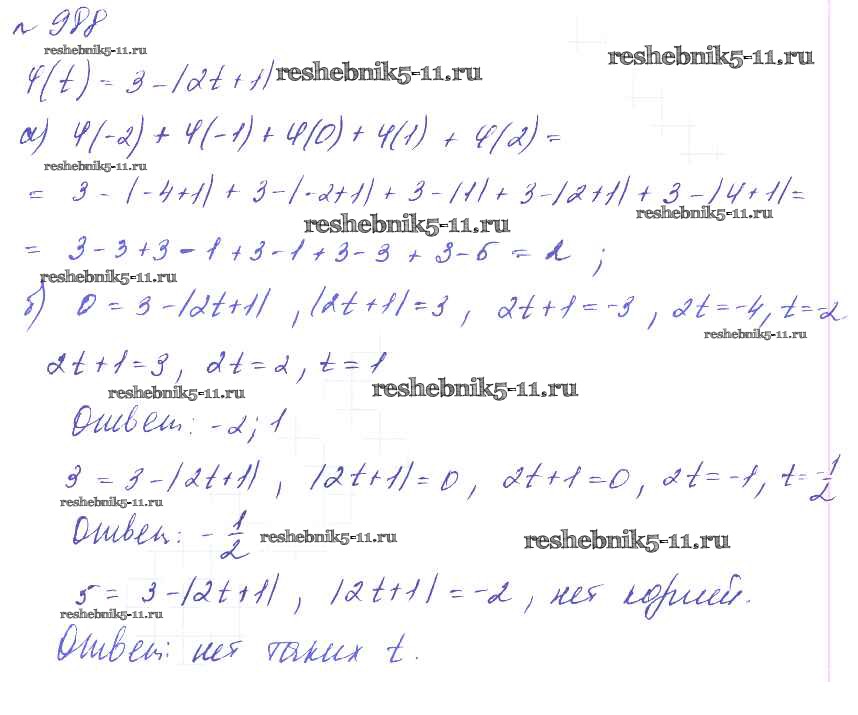 № 988
reshebnik5-11.ru
reshebnik5-11.ru
φ(t) = 3 - |2t + 1| reshebnik5-11.ru
а) φ(-2) + φ(-1) + φ(0) + φ(1) + φ(2) =
reshebnik5-11.ru
= 3 - |-4+1| + 3 - |-2+1| + 3 - |1| + 3 - |2+1| + 3 - |4+1| =
reshebnik5-11.ru
reshebnik5-11.ru
= 3 - 3 + 3 - 1 + 3 - 1 + 3 - 3 + 3 - 5 = 2 ;
reshebnik5-11.ru
б) 0 = 3 - |2t+1| , |2t+1| = 3 , 2t+1 = -3 , 2t = -4, t = -2
reshebnik5-11.ru
2t+1 = 3, 2t = 2, t = 1
reshebnik5-11.ru
reshebnik5-11.ru
Ответ: -2; 1
3 = 3 - |2t+1| , |2t+1| = 0 , 2t+1 = 0, 2t = -1, t = -1/2
reshebnik5-11.ru
Ответ: - 1/2 reshebnik5-11.ru
reshebnik5-11.ru
5 = 3 - |2t+1| , |2t+1| = -2 , нет корней.
reshebnik5-11.ru
Ответ: нет таких t.